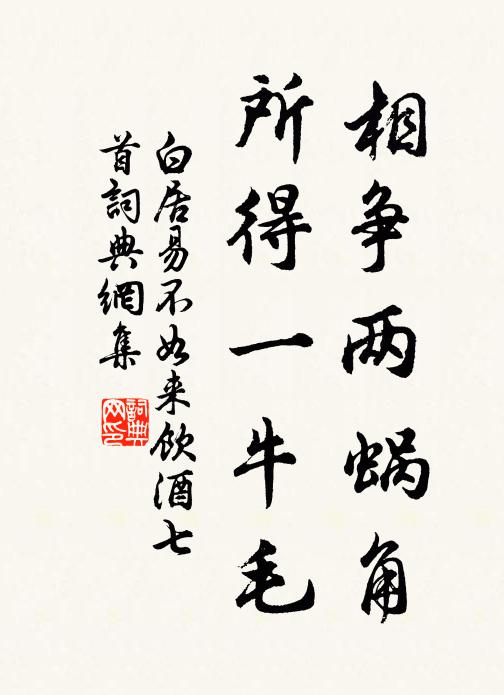 相争两蜗角
所得一牛毛
白居易不如来饮酒七
首詞典網集
詞典
网印